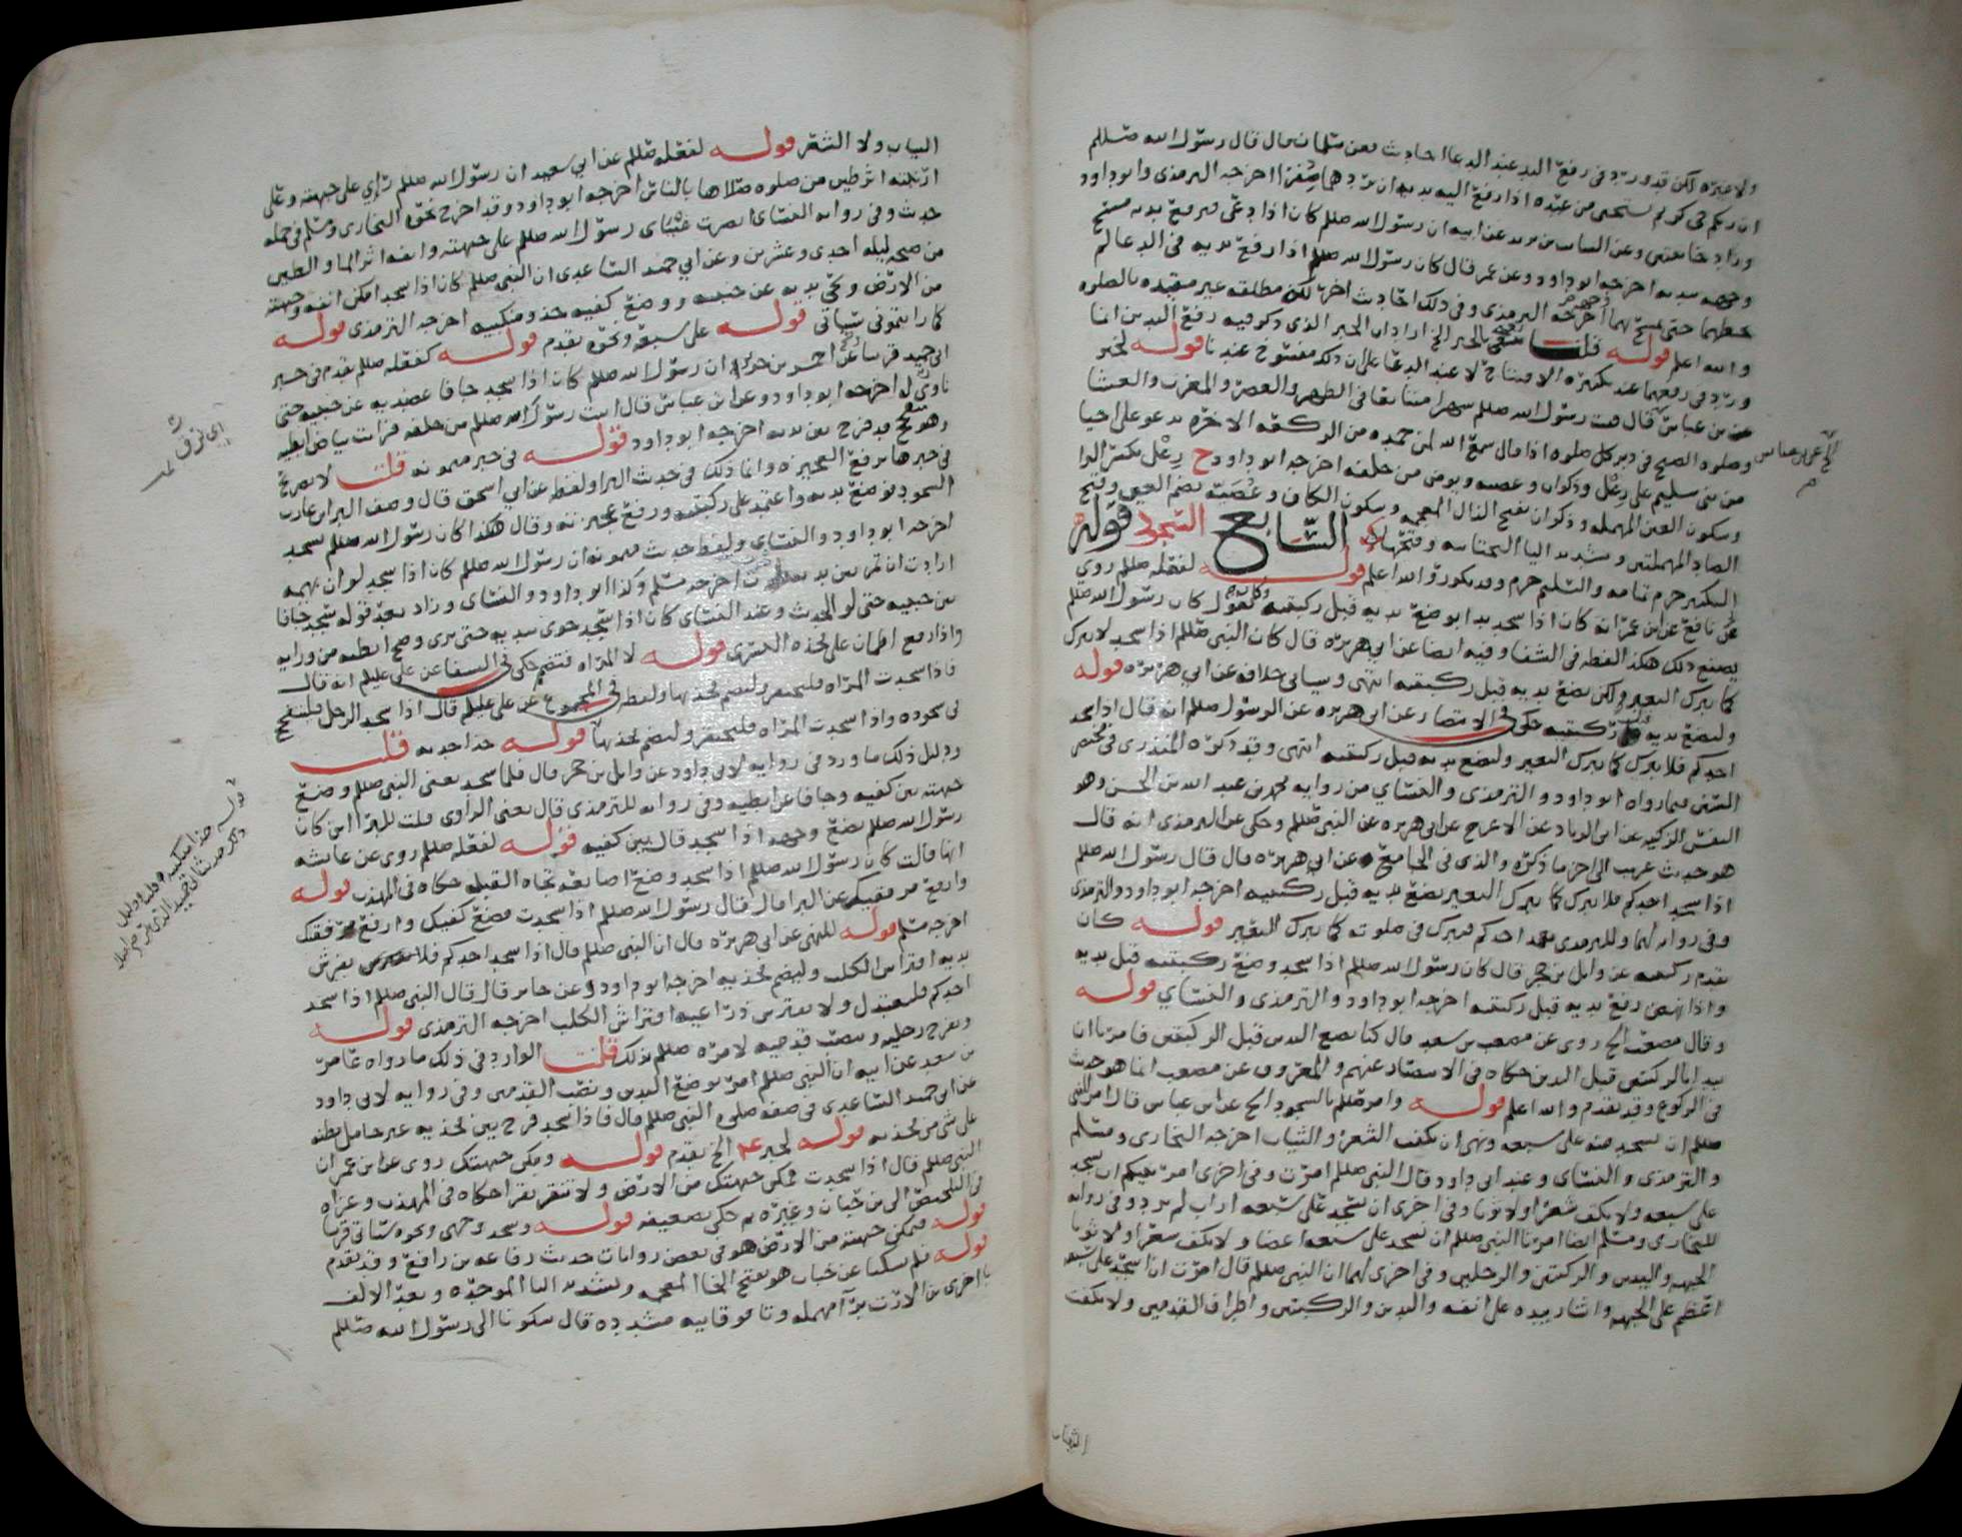 ولا غيره لكن قد ورد في رفع اليد عند الدعا احاديث فعن سلمان قال قال رسول الله صللم
ان ربكم حيي كريم يستحيي من عبده اذا رفع اليه يديه ان يردهما صفرا اخرجه الترمذي وابو داود
وزاد خايبتين وعن السائب بن يزيد عن ابيه ان رسول الله صللم كان اذا دعى فرفع يديه مسح
وجهه بيديه اخرجه ابو داود وعن عمر قال كان رسول الله صللم اذا رفع يديه في الدعا لم
يحطهما حتى يمسح بهما وجهه اخرجه الترمذي وفي ذلك احاديث اخر لكن مطلقه غير مقيده بالصلوه
والله اعلم قوله قلت الخبر الخ اراد ان الخبر الذي ذكر فيه رفع اليدين انما
ورد في رفعهما عند تكبيره الافتتاح لا عند الدعا على ان ذلك منسوخ عندنا قوله لخبر
عن بن عباس قال قنت رسول الله صللم شهرا متتابعا في الظهر والعصر والمغرب والعشا
الخ عن ابن عباس
وصلوه الصبح في دبر كل صلوه اذا قال سمع الله لمن حمده من الركعه الاخره يدعو على احيا
من بني سليم على رعل وذكوان وعصيه ويؤمن من خلفه اخرجه ابو داود ح رعل بكسر الرا
وسكون العين المهمله وذكوان بفتح الذال المعجمه وسكون الكاف وعصيه بضم العين وفتح
الصاد المهملتين وتشديد اليا التحتانيه وفتحها السابع السجود قوله
التكبير حزم تمامه والتسليم حزم وقد يكور والله اعلم قوله لفعله صللم روي
عن نافع عن ابن عمر انه كان اذا سجد بدا بوضع يديه قبل ركبتيه وكان يقول كان رسول الله صللم
يصنع ذلك هكذا لفظه في الشفا وفيه ايضا عن ابي هريره قال كان النبي صللم اذا سجد لا يبرك
كما يبرك البعير ولكن يضع يديه قبل ركبتيه انتهى وسياتي خلافه عن ابي هريره قوله
وليضع يديه ركبتيه حكى في الانتصار عن ابي هريره عن الرسول صللم انه قال اذا سجد
احدكم فلا يبرك كما يبرك البعير وليضع يديه قبل ركبتيه انتهى وقد ذكره المنذري في مختصر
السنن فيما رواه ابو داود والترمذي والنسائي من روايه محمد بن عبد الله بن الحسن وهو
النفس الزكيه عن ابي الزناد عن الاعرج عن ابي هريره عن النبي صللم وحكى عن الترمذي انه قال
هو حديث غريب الى اخر ما ذكره والذي في الجامع عن ابي هريره قال قال رسول الله صللم
اذا سجد احدكم فلا يبرك كما يبرك البعير يضع يديه قبل ركبتيه اخرجه ابو داود والترمذي
وفي روايه لهما وللترمذي يعمد احدكم فيبرك في صلوته كما يبرك البعير قوله كان
يقدم ركبتيه عن وايل بن حجر قال كان رسول الله صللم اذا سجد وضع ركبتيه قبل يديه
واذا نهض رفع يديه قبل ركبتيه اخرجه ابو داود والترمذي والنسائي قوله
وقال مصعب الخ روي عن مصعب بن سعد قال كنا نضع اليدين قبل الركبتين فامرنا ان
نبدا بالركبتين قبل اليدين حكاه في الانتصار عنهم والمعروف عن مصعب انما هو حديث
في الركوع وقد تقدم والله اعلم قوله وامر صللم بالسجود الخ عن ابن عباس قال امر النبي
صللم ان نسجد منه على سبعه ونهي ان يكفت الشعر والثياب اخرجه البخاري ومسلم
والترمذي والنسائي وعند ابي داود قال النبي صللم امرت وفي اخرى امر نبيكم ان يسجد
على سبعه ولا يكف شعرا ولا ثوبا وفي اخرى ان نسجد على سبعه اراب لم يزد وفي روايه
للبخاري ومسلم ايضا امرنا النبي صللم ان نسجد على سبعه اعضا ولا نكف شعرا ولا ثوبا
الجبهه واليدين والركبتين والرجلين وفي اخرى لهما ان النبي صللم قال امرت ان اسجد على سبعه
اعظم على الجبهه واشار بيده على انفه واليدين والركبتين واطراف القدمين ولا نكفت
الثياب
الثياب ولا الشعر قوله لفعله صللم عن ابي سعيد ان رسول الله صللم رأي على جبهته وعلى
ارنبته اثر طين من صلوه صلاها بالناس اخرجه ابو داود وقد اخرج نحوه البخاري ومسلم في جمله
حديث وفي روايه النسائي بصرت عيناي رسول الله صللم على جبهته وانفه اثر الما والطين
من صبح ليله احدى وعشرين وعن ابي حميد الساعدي ان النبي صللم كان اذا سجد امكن انفه وجبهته
من الارض ونحى يديه عن جنبيه ووضع كفيه حذو منكبيه اخرجه الترمذي قوله
كما رايتموني سياتي قوله على سبعه ونحوه تقدم قوله كفعله صللم تقدم في خبر
ابي حميد قريبا وعن احمر بن جزي ان رسول الله صللم كان اذا سجد جافا عضديه عن جنبيه حتى
ناوي له اخرجه ابو داود وعن ابن عباس قال اتيت رسول الله صللم من خلفه فرايت بياض ابطيه
اي نرق له
وهو مجخ قد فرج بين يديه اخرجه ابو داود قوله في خبر ميمونه قلت لا تصريح
في خبرها برفع العجيزه وانما ذلك في حديث البرا ولفظه عن ابي اسحق قال وصف البرا بن عازب
السجود فوضع يديه واعتمد على ركبتيه ورفع عجيزته وقال هكذا كان رسول الله صللم يسجد
اخرجه ابو داود والنسائي ولفظ حديث ميمونه ان رسول الله صللم كان اذا سجد لو ان بهمه
ارادت ان تمر بين يديه مرت اخرجه مسلم وكذا ابو داود والنسائي وزاد بعد قوله سجد جافا
بين جنبيه حتى لو الحديث وعند النسائي كان اذا سجد خوى بيديه حتى يرى وضح ابطيه من ورايه
واذا رفع اطمان على فخذه اليسرى قوله لا المراه فتنضم حكى في الشفا عن علي عليلم انه قال
فاذا سجدت المراه فلتحتفز ولتضم فخذيها ولفظه في المجموع عن علي عليلم قال اذا سجد الرجل فليتفجج
في سجوده واذا سجدت المراه فلتحتفز ولتضم فخذيها قوله حذا خديه قلت
ودليل ذلك ما ورد في روايه لابي داود عن وايل بن حجر قال فلما سجد يعني النبي صللم وضع
جبهته بين كفيه وجافا عن ابطيه وفي روايه للترمذي قال يعني الراوي قلت للبرا اين كان
قوله حذا منكبيه قلنا ودليل
ذلك حديث ابي حميد الذي مر
رسول الله صللم يضع وجهه اذا سجد قال بين كفيه قوله لفعله صللم روي عن عائشه
انها قالت كان رسول الله صللم اذا سجد وضع اصابعه تجاه القبله حكاه في المهذب قوله
وارفع مرفقيك عن البرا قال قال رسول الله صللم اذا سجدت فضع كفيك وارفع مرفقيك
اخرجه مسلم قوله للنهي عن ابي هريره قال ان النبي صللم قال اذا سجد احدكم فلا يفترش
يديه افتراش الكلب وليضم فخذيه اخرجه ابو داود وعن جابر قال قال النبي صللم اذا سجد
احدكم فليعتدل ولا يفترش ذراعيه افتراش الكلب اخرجه الترمذي قوله
ويفرج رجليه وينصب قدميه لامره صللم بذلك قلت الوارد في ذلك ما رواه عامر
بن سعد عن ابيه ان النبي صللم امر بوضع اليدين ونصب القدمين وفي روايه لابي داود
عن ابي حميد الساعدي في صفه صلوه النبي صللم قال فاذا سجد فرج بين فخذيه غير حامل بطنه
على شي من فخذيه قوله لخبر عم الخ تقدم قوله ومكن جبهتك روي عن ابن عمر ان
النبي صللم قال اذا سجدت فمكن جبهتك من الارض ولا تنقر نقرا حكاه في المهذب وعزاه
في التلخيص الى بن حبان وغيره ثم حكى تضعيفه قوله وسجد وجهي ونحوه سياتي قريبا
قوله فيمكن جبهته من الارض هو في بعض روايات حديث رفاعه بن رافع وقد تقدم
قوله فلم يشكنا عن خباب هو بفتح الخا المعجمه وتشديد البا الموحده وبعد الالف
با اخرى بن الارت برا مهمله وتا فوقانيه مشدده قال شكونا الى رسول الله صللم